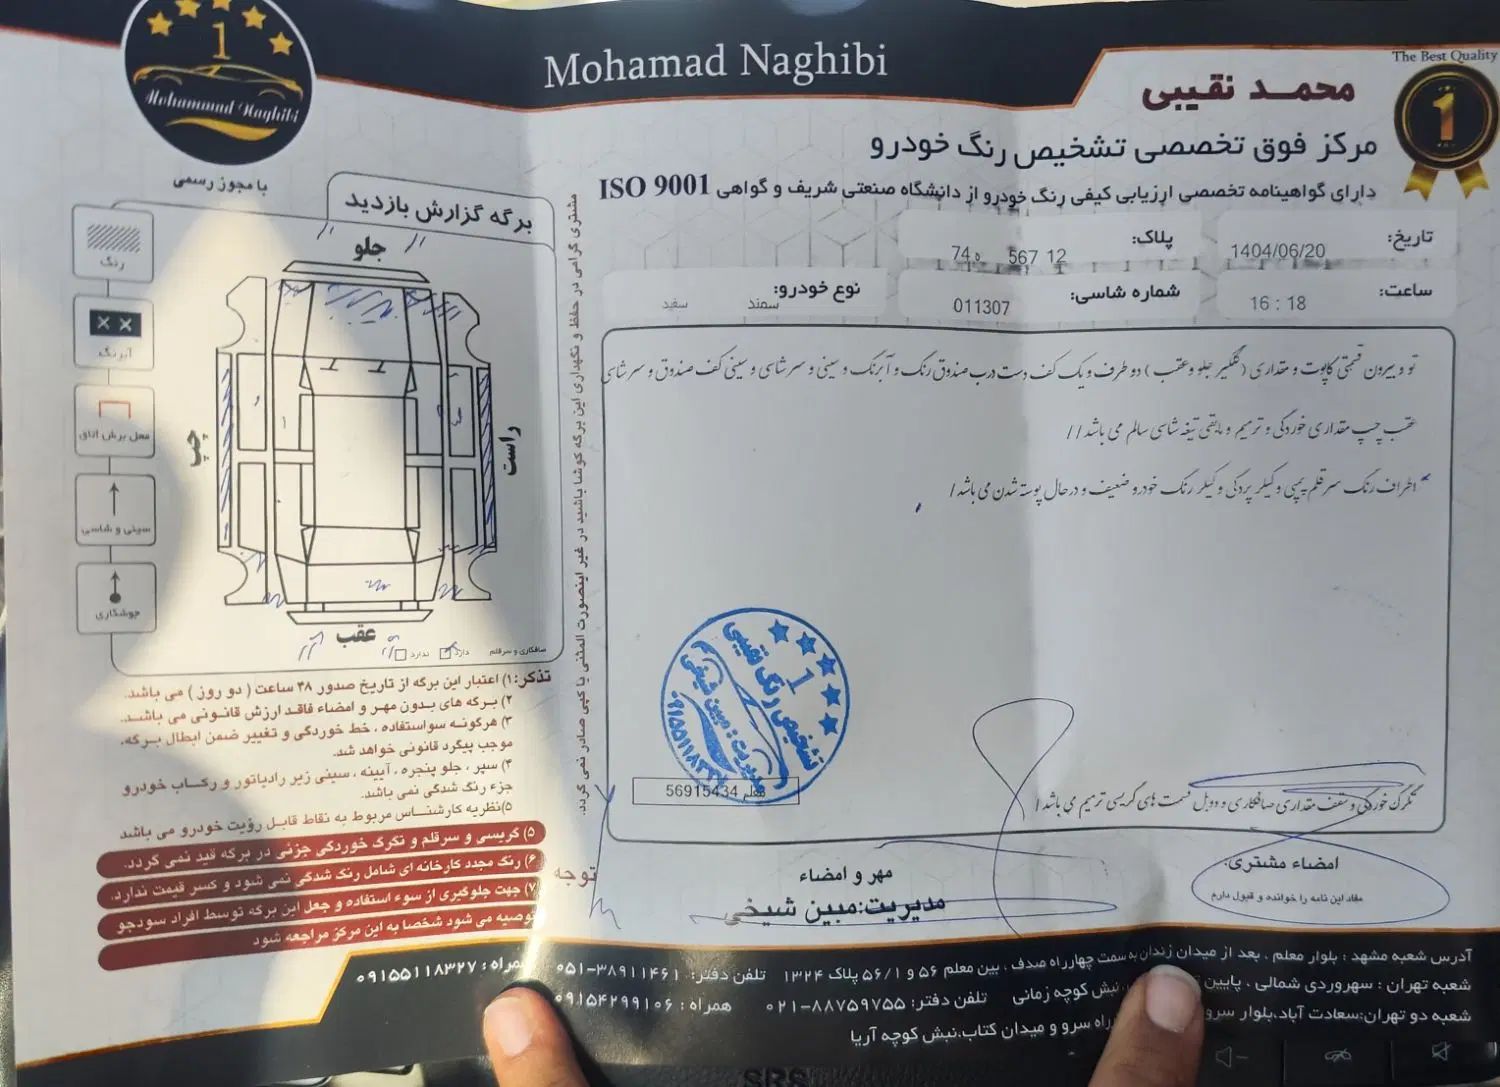 Mohamad Naghibi
The Best Quality
1
محمد نقیبی
مرکز فوق تخصصی تشخیص رنگ خودرو
دارای گواهینامه تخصصی ارزیابی کیفی رنگ خودرو از دانشگاه صنعتی شریف و گواهی ISO 9001
تاریخ: 1404/06/20
پلاک: 12 567 74
ساعت: 16 : 18
شماره شاسی: 011307
نوع خودرو: سمند سفید
تو و بیرون قسمتی کاپوت و مقداری (گلگیر جلو و عقب) دو طرف و یک کف دست درب صندوق رنگ و آبرنگ و سینی و سر شاسی و سینی کف صندوق و سر شاسی
عقب چپ مقداری خوردگی و ترمیم و مابقی تیغه شاسی سالم می باشد //
اطراف رنگ سرقلم پمپی و کیلر پردگی و کیلر رنگ خودرو ضعیف و در حال پوسته شدن می باشد /
تگرگ خوردگی و سقف مقداری صافکاری و دوبل قسمت های گریسی ترمیم می باشد /
1
تشخیص رنگ نقیبی
مدیریت: مبین شیخی
56915434
امضاء مشتری:
مفاد این نامه را خوانده و قبول دارم
مهر و امضاء
مدیریت:مبین شیخی
توجه
مشتری گرامی در حفظ و نگهداری این برگه کوشا باشید در غیر اینصورت المثنی یا کپی صادر نمی گردد.
1
Mohammad Naghibi
با مجوز رسمی
برگه گزارش بازدید
رنگ
آبرنگ
محل برش اتاق
سینی و شاسی
جوشکاری
جلو
چپ
راست
عقب
صافکاری و سرقلم دارد ندارد
تذکر: ۱) اعتبار این برگه از تاریخ صدور ۴۸ ساعت ( دو روز ) می باشد.
۲) برگه های بدون مهر و امضاء فاقد ارزش قانونی می باشد.
۳) هرگونه سواستفاده ، خط خوردگی و تغییر ضمن ابطال برگه،
موجب پیگرد قانونی خواهد شد.
۴) سپر ، جلو پنجره ، آیینه ، سینی زیر رادیاتور و رکاب خودرو
جزء رنگ شدگی نمی باشد.
۵)نظریه کارشناس مربوط به نقاط قابل رؤیت خودرو می باشد
۵) گریسی و سرقلم و تگرگ خوردگی جزئی در برگه قید نمی گردد.
۶) رنگ مجدد کارخانه ای شامل رنگ شدگی نمی شود و کسر قیمت ندارد.
۷) جهت جلوگیری از سوء استفاده و جعل این برگه توسط افراد سودجو
توصیه می شود شخصا به این مرکز مراجعه شود
آدرس شعبه مشهد : بلوار معلم ، بعد از میدان زندان به سمت چهارراه صدف ، بین معلم ۵۶ و ۵۶/۱ پلاک ۱۳۲۴ تلفن دفتر: ۰۵۱-۳۸۹۱۱۴۶۱ همراه : ۰۹۱۵۵۱۱۸۳۲۷
شعبه تهران : سهروردی شمالی ، پایین نبش کوچه زمانی تلفن دفتر: ۰۲۱-۸۸۷۵۹۷۵۵ همراه : ۰۹۱۵۴۲۹۹۱۰۶
شعبه دو تهران:سعادت آباد،بلوار سرو راه سرو و میدان کتاب،نبش کوچه آریا
SRS